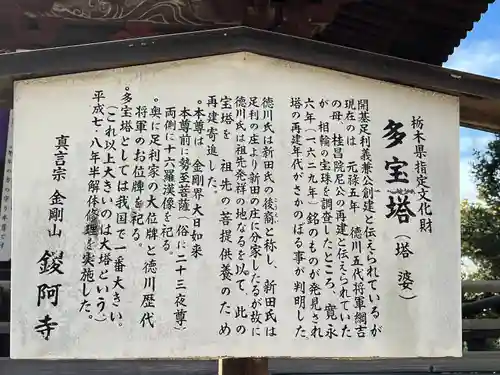 栃木県指定文化財
多宝塔（塔婆）
開基足利義兼公創建と伝えられているが
現在のは 元禄五年 徳川五代将軍綱吉
の母、桂昌院尼公の再建と伝えられていた
が、相輪の宝珠を調査したところ、寛永
六年（一六二九年）銘のものが発見され
塔の再建年代がさかのぼる事が判明した。
徳川氏は新田氏の後裔と称し、新田氏は
足利の庄より新田の庄に分家したるが故に
徳川氏は祖先発祥の地なるを以て、此の
宝塔を 祖先の菩提供養のため
再建寄進した。
。本尊は 金剛界大日如来
本尊前に勢至菩薩（俗に二十三夜尊）
両側に十六羅漢像を祀る。
。奥に足利家の大位牌と徳川歴代
将軍のお位牌を祀る。
。多宝塔としては我国で一番大きい。
（これ以上大きいのは大塔という。）
平成七・八年半解体修理を実施した。
真言宗 金剛山 鑁阿寺